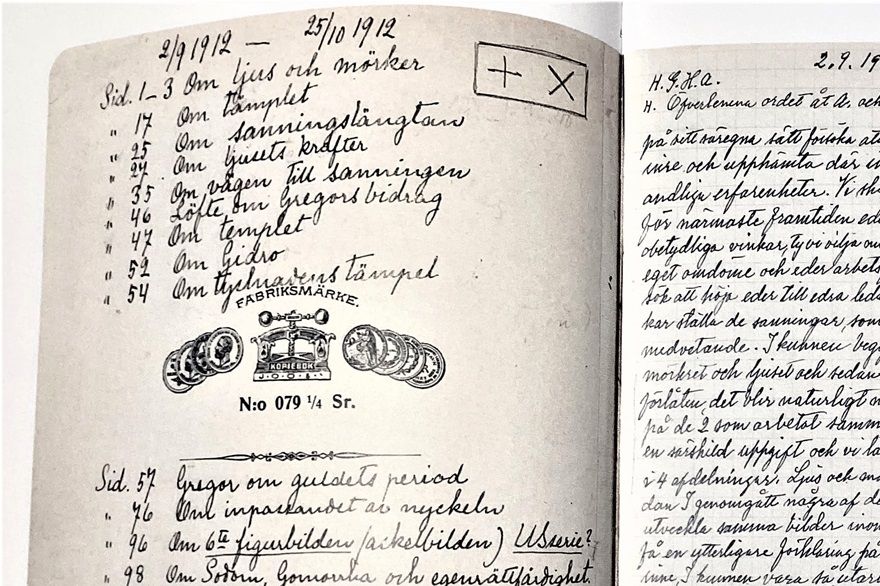 2/9 1912 — 25/10 1912
Sid. 1–3 Om ljus och mörker
" 17 Om tämplet
" 25 Om sanningslängtan
" 27 Om ljusets krafter
" 35 Om vägen till sanningen
" 46 Löfte om Gregors bidrag
" 47 Om templet
" 52 Om Gidro
" 54 Om tystnadens tämpel
+ X
FABRIKSMÄRKE.
KOPIEBOK
N:o 079 1/4 Sr.
Sid. 57 Gregor om guldets period
" 76 Om inpassandet av nyckeln
" 96 Om 6te figurbilden (askelbilden) US serie?
" 98 Om Sodom, Gomorrha och egenrättfärdighet.
2.9.19
H.G.H.A.
H. Öfverlemna ordet åt A. och
på sitt säregna sätt försöka
inre och upphämta där
andliga erfarenheter. Vi
för närmaste framtiden
obetydliga vinkar, ty vi vilja
eget omdöme och eder
sök att höja eder till edra
kar ställa de sanningar som
medvetande. I kunnen
mörkret och ljuset och sedan
förlåten, det blir naturligt
på de 2 som arbetat
en särskild uppgift och vi
i 4 afdelningar. Ljus och
dan I genomgått några af
utveckla samma bilder
få en ytterligare förklaring på
inne. I kunnen vara så